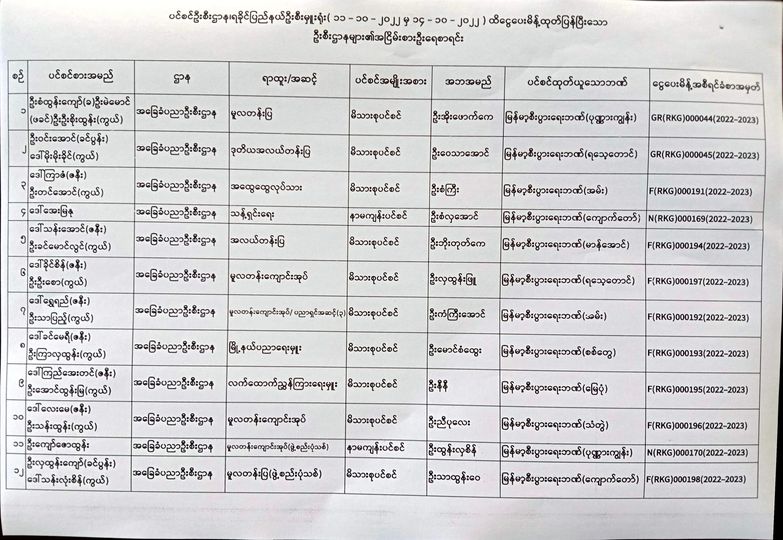 ပင်စင်ဦးစီးဌာန၊ရခိုင်ပြည်နယ်ဦးစီးမှူးရုံး( ၁၁ - ၁၀ - ၂၀၂၂ မှ ၁၄ - ၁၀ - ၂၀၂၂ ) ထိငွေပေးမိန့်ထုတ်ပြန်ပြီးသော
ဦးစီးဌာနများ၏အငြိမ်းစားဦးရေစာရင်း
စဉ် ပင်စင်စားအမည် ဌာန ရာထူး/အဆင့် ပင်စင်အမျိုးအစား အဘအမည် ပင်စင်ထုတ်ယူသောဘဏ် ငွေပေးမိန့်အစီရင်ခံစာအမှတ်
၁ ဦးစံထွန်းကျော်(ခ)ဦးမဲမောင် (ဖခင်)ဦးဦးစိုးထွန်း(ကွယ်) အခြေခံပညာဦးစီးဌာန မူလတန်းပြ မိသားစုပင်စင် ဦးအိုးဖောက်ကေ မြန်မာ့စီးပွားရေးဘဏ်(ပုဏ္ဏားကျွန်း) GR(RKG)000044(2022-2023)
၂ ဦးဝင်းအောင်(ခင်ပွန်း) ဒေါ်မိုးမိုးခိုင်(ကွယ်) အခြေခံပညာဦးစီးဌာန ဒုတိယအလယ်တန်းပြ မိသားစုပင်စင် ဦးဝေသာအောင် မြန်မာ့စီးပွားရေးဘဏ်(ရသေ့တောင်) GR(RKG)000045(2022-2023)
၃ ဒေါ်ကြာဇံ(ဇနီး) ဦးတင်အောင်(ကွယ်) အခြေခံပညာဦးစီးဌာန အထွေထွေလုပ်သား မိသားစုပင်စင် ဦးစံကြီး မြန်မာ့စီးပွားရေးဘဏ်(အမ်း) F(RKG)000191(2022-2023)
၄ ဒေါ်အေးမြနု အခြေခံပညာဦးစီးဌာန သန့်ရှင်းရေး နာမကျန်းပင်စင် ဦးစံလှအောင် မြန်မာ့စီးပွားရေးဘဏ်(ကျောက်တော်) N(RKG)000169(2022-2023)
၅ ဒေါ်သန်းအောင်(ဇနီး) ဦးခင်မောင်လွင်(ကွယ်) အခြေခံပညာဦးစီးဌာန အလယ်တန်းပြ မိသားစုပင်စင် ဦးဘိုးတုတ်ကေ မြန်မာ့စီးပွားရေးဘဏ်(မာန်အောင်) F(RKG)000194(2022-2023)
၆ ဒေါ်ခိုင်စိန်(ဇနီး) ဦးဦးစော(ကွယ်) အခြေခံပညာဦးစီးဌာန မူလတန်းကျောင်းအုပ် မိသားစုပင်စင် ဦးလှထွန်းဖြူ မြန်မာ့စီးပွားရေးဘဏ်(ရသေ့တောင်) F(RKG)000197(2022-2023)
၇ ဒေါ်ရွှေရည်(ဇနီး) ဦးသာပြည့်(ကွယ်) အခြေခံပညာဦးစီးဌာန မူလတန်းကျောင်းအုပ်/ပညာရှင်အဆင့်(၃) မိသားစုပင်စင် ဦးကံကြီးအောင် မြန်မာ့စီးပွားရေးဘဏ်(အမ်း) F(RKG)000192(2022-2023)
၈ ဒေါ်ခင်မေရီ(ဇနီး) ဦးကြာလှထွန်း(ကွယ်) အခြေခံပညာဦးစီးဌာန မြို့နယ်ပညာရေးမှူး မိသားစုပင်စင် ဦးမောင်စံထွေး မြန်မာ့စီးပွားရေးဘဏ်(စစ်တွေ) F(RKG)000193(2022-2023)
၉ ဒေါ်ကြည်အေးတင်(ဇနီး) ဦးအောင်ထွန်းမြ(ကွယ်) အခြေခံပညာဦးစီးဌာန လက်ထောက်ညွှန်ကြားရေးမှူး မိသားစုပင်စင် ဦးနီနီ မြန်မာ့စီးပွားရေးဘဏ်(မြေပုံ) F(RKG)000195(2022-2023)
၁၀ ဒေါ်လေးမေ(ဇနီး) ဦးသန်းထွန်း(ကွယ်) အခြေခံပညာဦးစီးဌာန မူလတန်းကျောင်းအုပ် မိသားစုပင်စင် ဦးညီပုလေး မြန်မာ့စီးပွားရေးဘဏ်(သံတွဲ) F(RKG)000196(2022-2023)
၁၁ ဦးကျော်ဇောထွန်း အခြေခံပညာဦးစီးဌာန မူလတန်းကျောင်းအုပ်(ဖွဲ့စည်းပုံသစ်) နာမကျန်းပင်စင် ဦးထွန်းလှစိန် မြန်မာ့စီးပွားရေးဘဏ်(ပုဏ္ဏားကျွန်း) N(RKG)000170(2022-2023)
၁၂ ဦးလှထွန်းကျော်(ခင်ပွန်း) ဒေါ်သန်းလုံးစိန်(ကွယ်) အခြေခံပညာဦးစီးဌာန မူလတန်းပြ(ဖွဲ့စည်းပုံသစ်) မိသားစုပင်စင် ဦးသာထွန်းဝေ မြန်မာ့စီးပွားရေးဘဏ်(ကျောက်တော်) F(RKG)000198(2022-2023)